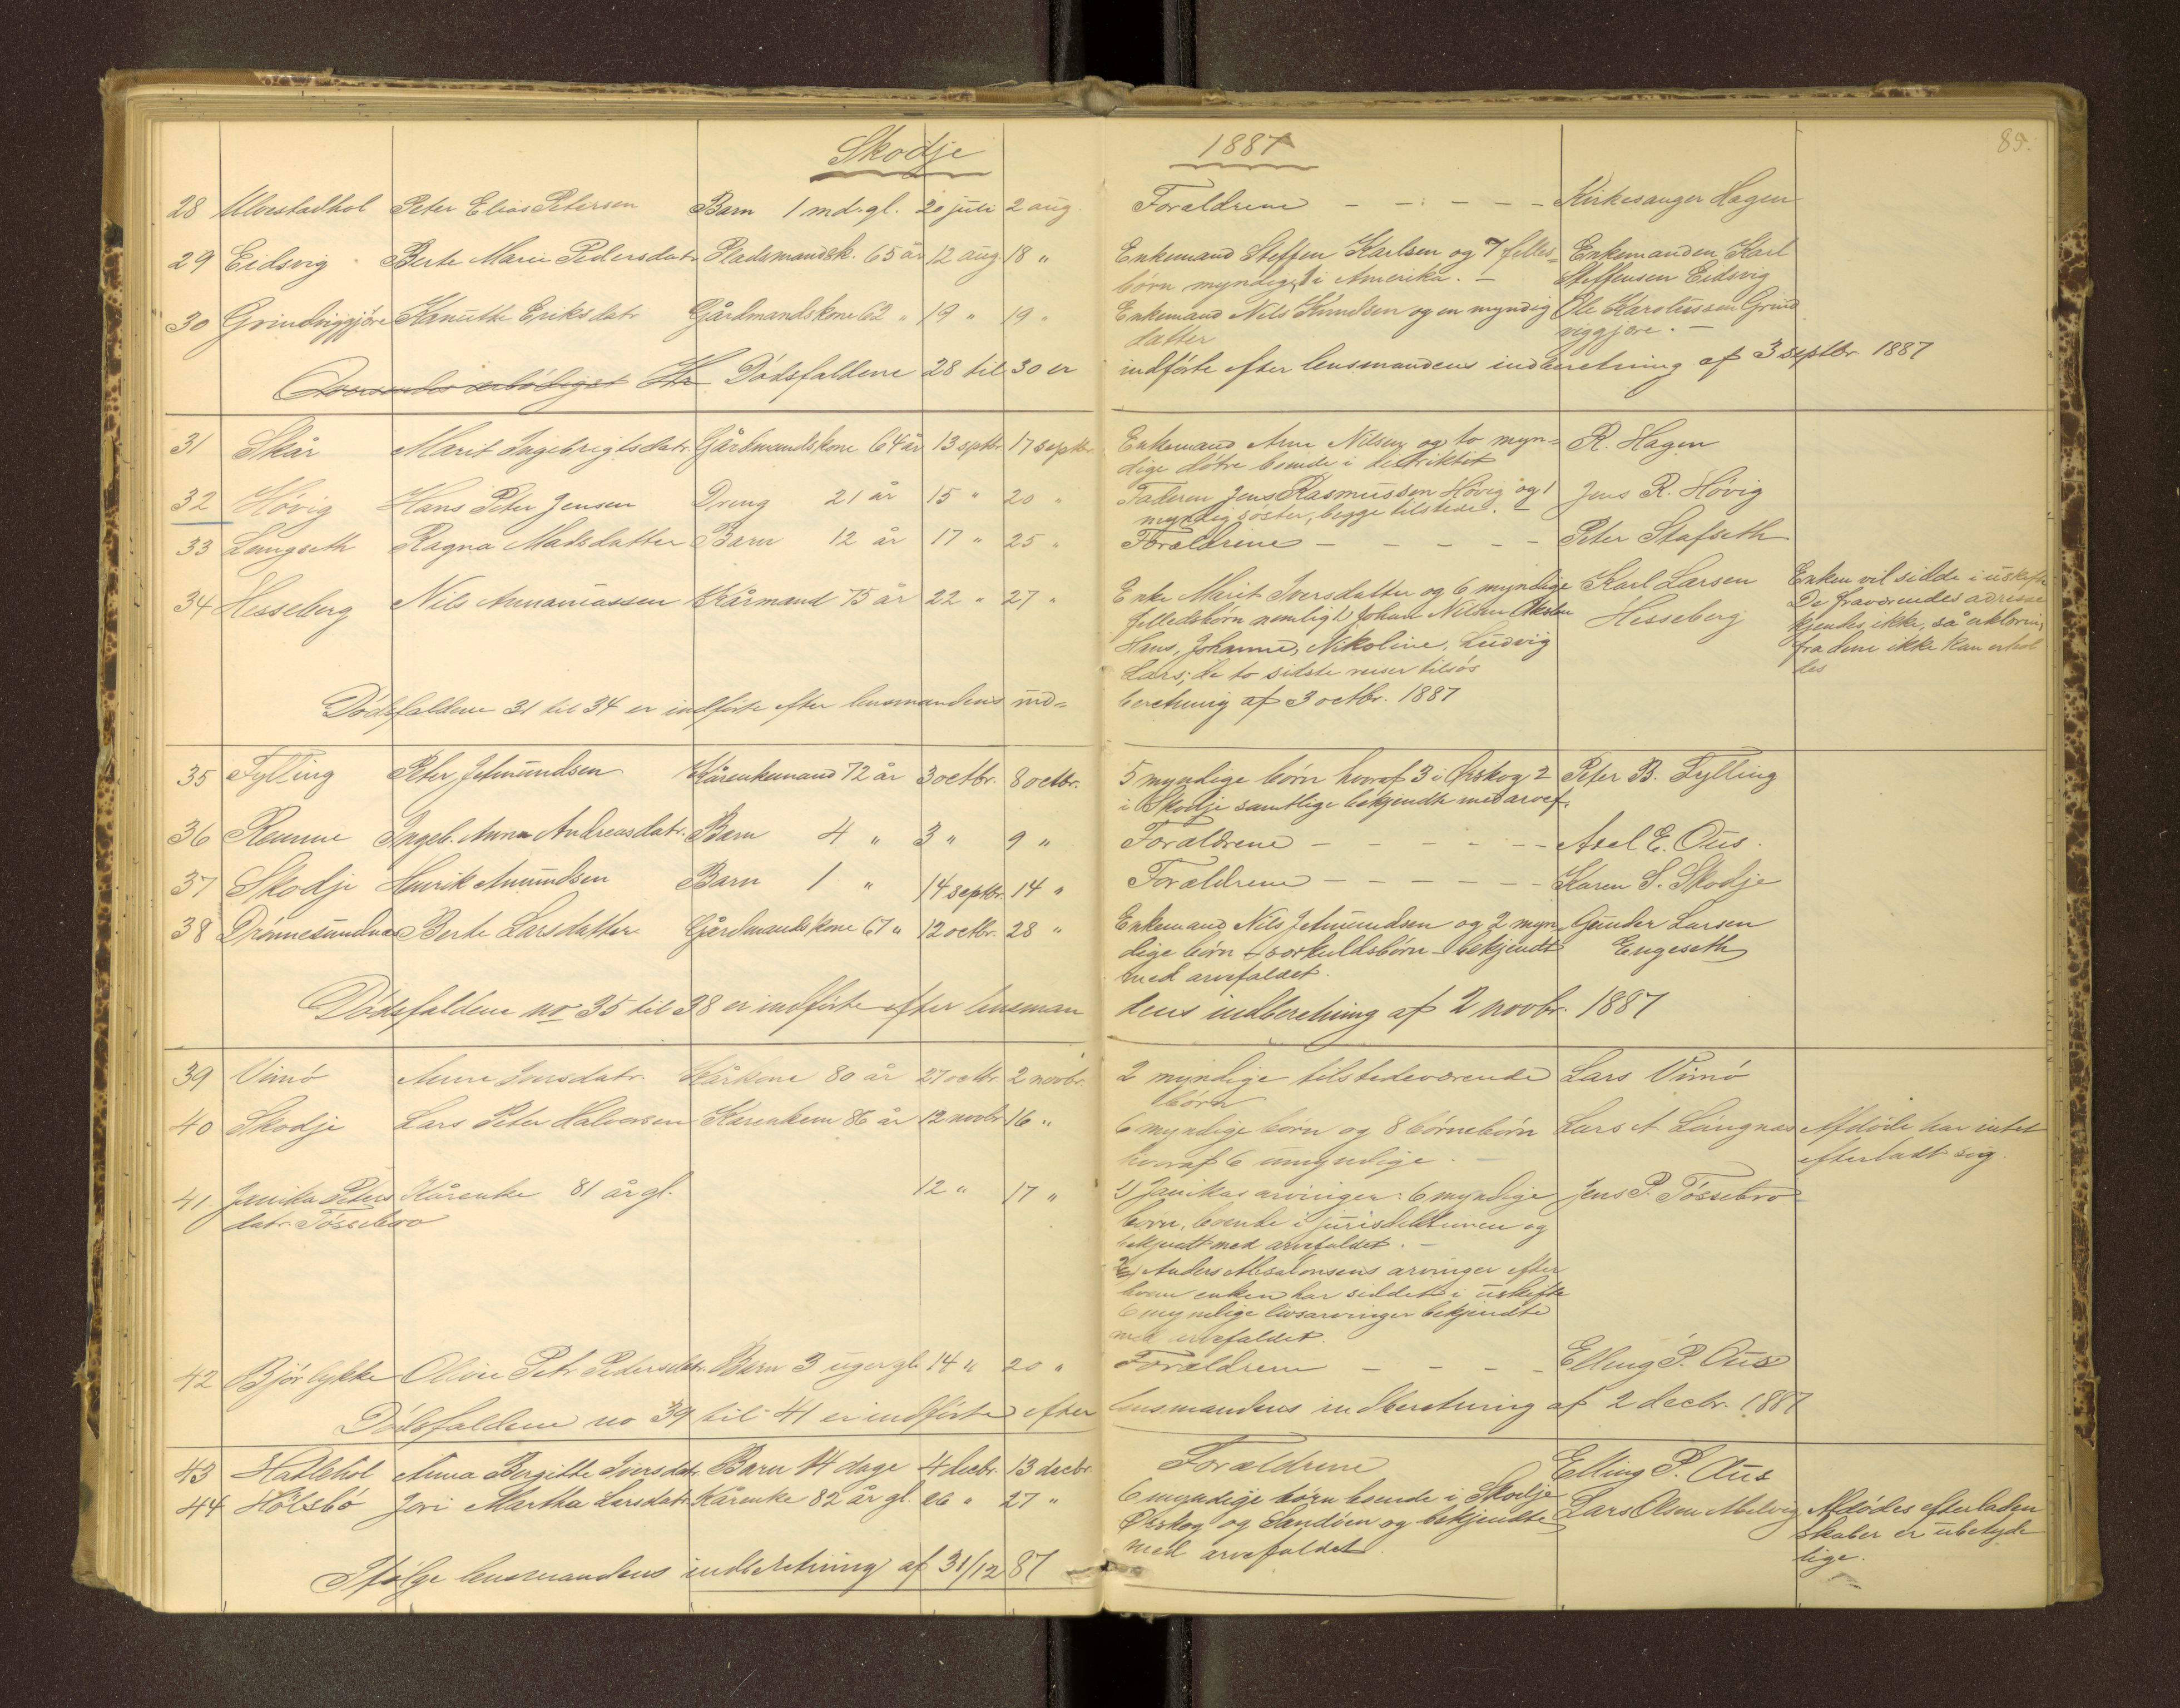 Skodje 1887 85.
28 Ulvestadhol Peter Elias Petersen Barn 1 md. gl. 20 juli 2 aug. Forældrene - - - - - Kirkesanger Hagen
29 Eidsvig Berte Marie Pedersdatr. Pladsmandsk. 65 år 12 aug 18 " Enkemand Steffen Karlsen og 7 felles- Enkemanden Karl
børn myndige, 1 i Amerika. - Steffensen Eidsvig
30 Grindviggjøre Knutte Eriksdatr Gårdmandskone 62 " 19 " 19 " Enkemand Nils Knudsen og en myndig Ole Karolussen Grind
datter viggjøre. -
Oversendes ærbødigst Dødsfaldene 28 til 30 er indførte efter lensmandens indberetning af 3 septbr. 1887
31 Skår Marit Ingebrigtsdatr. Gårdmandskone 64 år 13 sptbr. 17 septbr. Enkemand Arne Nilsen og to myn- R. Hagen
dige døtre boende i distriktet
32 Høvig Hans Peter Jensen Dreng 21 år 15 " 20 " Faderen Jens Rasmussen Høvig og 1 Jens R. Høvig
myndig søster, begge tilstede. -
33 Langseth Ragna Madsdatter Barn 12 år 17 " 25 " Forældrene - - - - - Peter Stafseth
34 Hesseberg Nils Annaniassen Kårmand 75 år 22 " 27 " Enke Marit Iversdatter og 6 myndige Karl Larsen Enken vil sidde i uskifte
felledsbørn nemlig 1) Johan Nilsen Hesseberg De fraværendes adresse
Hans, Johanne, Nikoline, Ludvig kjendes ikke, så erklæring
Lars; de to sidste reiser tilsøs fra dem ikke kan erhol
des
Dødsfaldene 31 til 34 er indførte efter lensmandens ind- beretning af 3 octbr. 1887
35 Fylling Peter Jetmundsen Kårenkemand 72 år 3 octbr. 8 octbr. 5 myndige børn hvoraf 3 i Ørskog 2 Peter B. Fylling
i Skodje samtlige bekjendte med arvef.
36 Remme Ingeb. Anna Andreasdatr. Barn 4 " 3 " 9 " Forældrene - - - - - Axel E. Ous.
37 Skodje Henrik Amundsen Barn 1 " 14 septbr. 14 " Forældrene - - - - - - Karen S. Skodje
38 Drønnesundnes Berte Larsdatter Gårdmandskone 67 " 12 octbr. 28 " Enkemand Nils Jetmundsen og 2 myn- Gunder Larsen
dige børn - sørkuldsbørn - bekjendt Engeseth
med arvefaldet.
Dødsfaldene no 35 til 38 er indførte efter lensman dens indberetning af 2 novbr. 1887
39 Vimø Anne Jonsdatr. Kårkone 80 år 27 octbr. 2 novbr. 2 myndige tilstedeværende Lars Vimø
børn
40 Skodje Lars Peter Halvorsen Kårenkem 86 år 12 novbr 16 " 6 myndige børn og 8 børnebørn Lars A. Langnæs Afdøde har intet
hvoraf 6 umyndige. efterladt sig.
41 Janika Peters Kårenke 81 år gl. 12 " 17 " 1) Janikas arvinger: 6 myndige Jens P. Tøssebro
datr. Tøssebro børn, boende i jurisdiktionen og
bekjendt med arvefaldet. -
2) Anders Absalonsens arvinger efter
hvem enken har siddet i uskifte
6 myndige livsarvinger bekjendte
med arvefaldet.
42 Bjørlykke Oline Petr. Pedersdatr. Barn 3 uger gl. 14 " 20 " Forældrene - - - - Elling P. Ous
Dødsfaldene no 39 til 41 er indførte efter lensmandens indberetning af 2 decbr. 1887
43 Hatlehol Anna Bergitte Iversdatr. Barn 14 dage 4 decbr. 13 decbr. Forældrene Elling P. Ous
44 Holsbø Jori Martha Larsdatr. Kårenke 82 år gl. 26 " 27 " 6 myndige børn boende i Skodje Lars Olsen Melvig Afdødes efterladen
Ørskog og Sandøen og bekjendte skaber er ubetyde
med arvefaldet. lige.
Ifølge lensmandens indberetning af 31/12 87